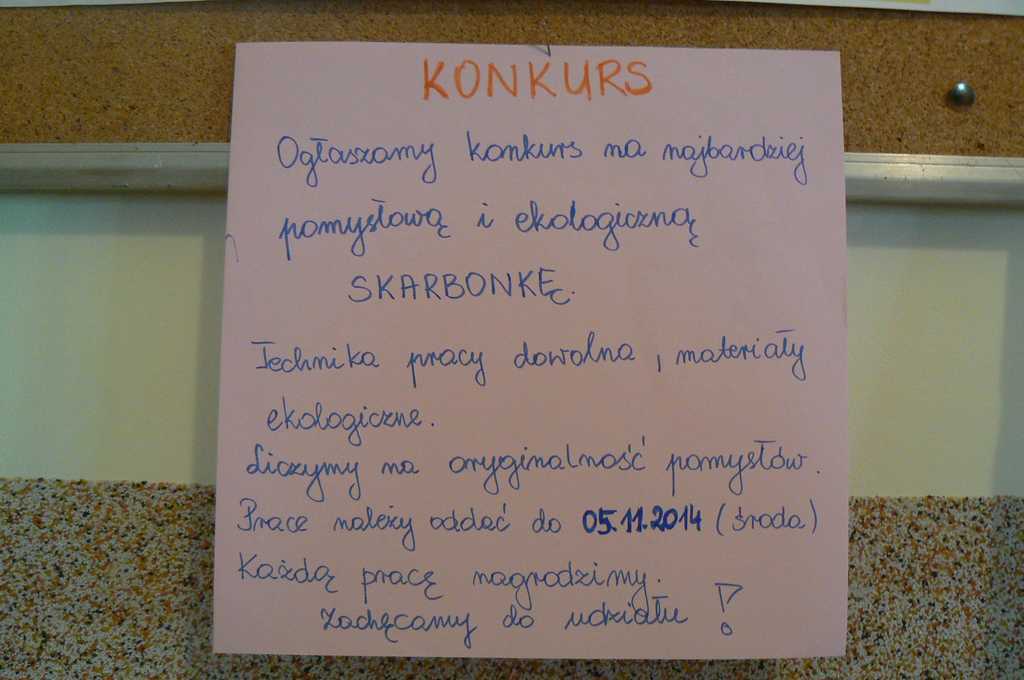 KONKURS
Ogłaszamy konkurs na najbardziej
pomysłową i ekologiczną
SKARBONKĘ.
Technika pracy dowolna, materiały
ekologiczne.
Liczymy na oryginalność pomysłów.
Prace należy oddać do 05.11.2014 (środa)
Każdą pracę nagrodzimy.
Zachęcamy do udziału!